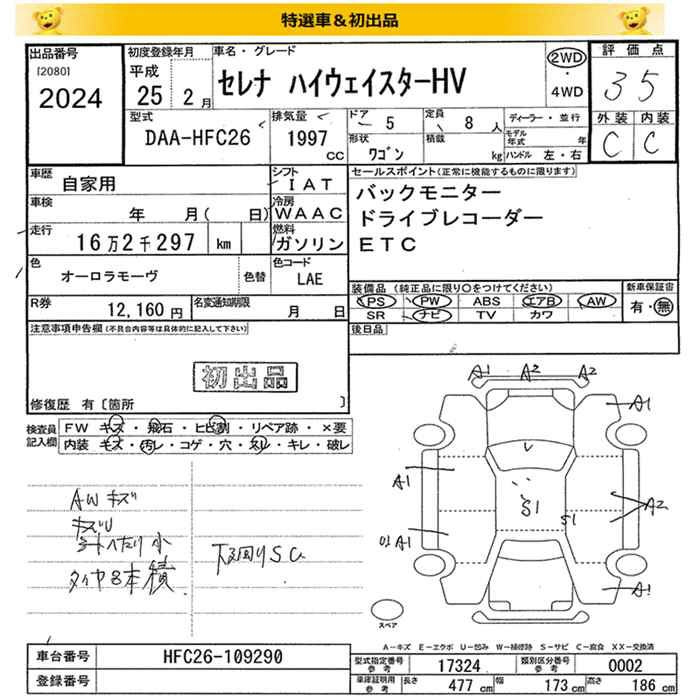 特選車&初出品
出品番号
[2080]
2024
初度登録年月
平成
25 2月
車名・グレード
セレナ ハイウェイスターHV
2WD
・
4WD
評価点
35
外装 内装
C C
型式
DAA-HFC26
排気量
1997
cc
ドア
5
定員
8人
形状
ワゴン
積載
kg
ディーラー・並行
モデル年式 年
ハンドル 左・右
車歴
自家用
シフト
IAT
車検
年 月( 日)
冷房
WAAC
走行
16万2千297 km
燃料
ガソリン
色
オーロラモーヴ
色替
色コード
LAE
R券
12,160円
名変通知期限
月 日
セールスポイント(正常に機能するものに限ります)
バックモニター
ドライブレコーダー
ETC
装備品 (純正品に限り○をつけてください)
PS PW ABS エアB AW
SR ナビ TV カワ
新車保証書
有・無
後日品
注意事項申告欄(不具合内容等は具体的に記入して下さい)
初出品
修復歴 有〔箇所 〕
検査員記入欄
FW キズ・飛石・ヒビ割・リペア跡・×要
内装 キズ・汚レ・コゲ・穴・スレ・キレ・破レ
AWキズ
キズU
シートヘたり小
タイヤ8本積
下廻りSC
A1 A2 A2
A1
A1
V
S1
S1
A2
U1 A1
A1
スペア
A-キズ E-エクボ U-凹み W-補修跡 S-サビ C-腐食 XX-交換済
車台番号
HFC26-109290
登録番号
型式指定番号
参考
17324
類別区分番号
参考
0002
車庫証明用
参考
長さ 477cm
幅 173cm
高さ 186cm